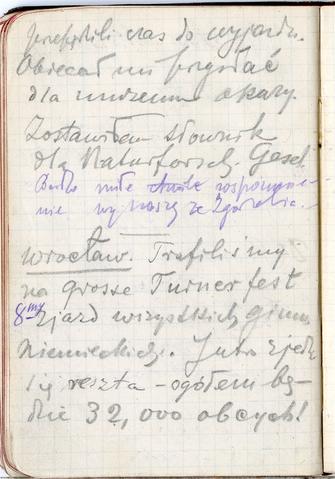 przepędzili czas do wyjazdu.
Obiecał mi przysłać
dla muzeum okazy.
Zostawiłem słownik
dla Naturforsch. Gesel.
Bardzo miłe chwile wspomnie-
nie wynoszę ze Zgorzelca.
Wrocław. Trafiliśmy
na grosse Turnerfest
8my zjazd wszystkich gimn.
Niemieckich. Jutro zjedz
się reszta – ogółem bę-
dzie 32,000 obcych!